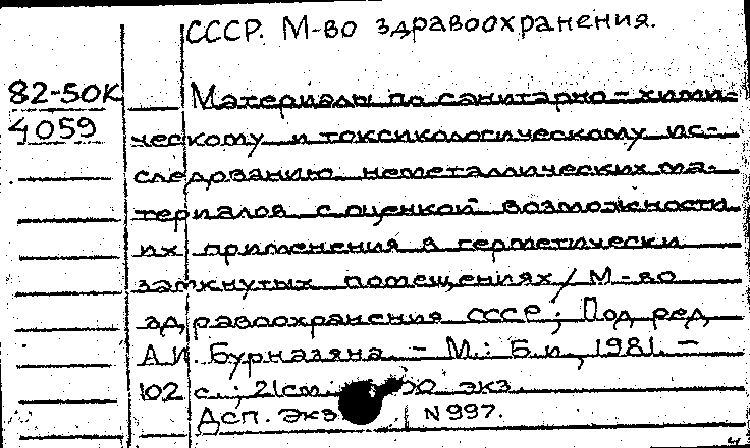 СССР. М-во здравоохранения.
82-50К Материалы по санитарно-хими-
4059 ческому и токсикологическому ис-
следованию неметаллических ма-
териалов с оценкой возможности
их применения в герметически
замкнутых помещениях / М-во
здравоохранения СССР; Под ред.
А.И. Бурназяна. - М.: Б.и., 1981. -
102 с.; 21см. экз.
Дсп. Экз N 997.